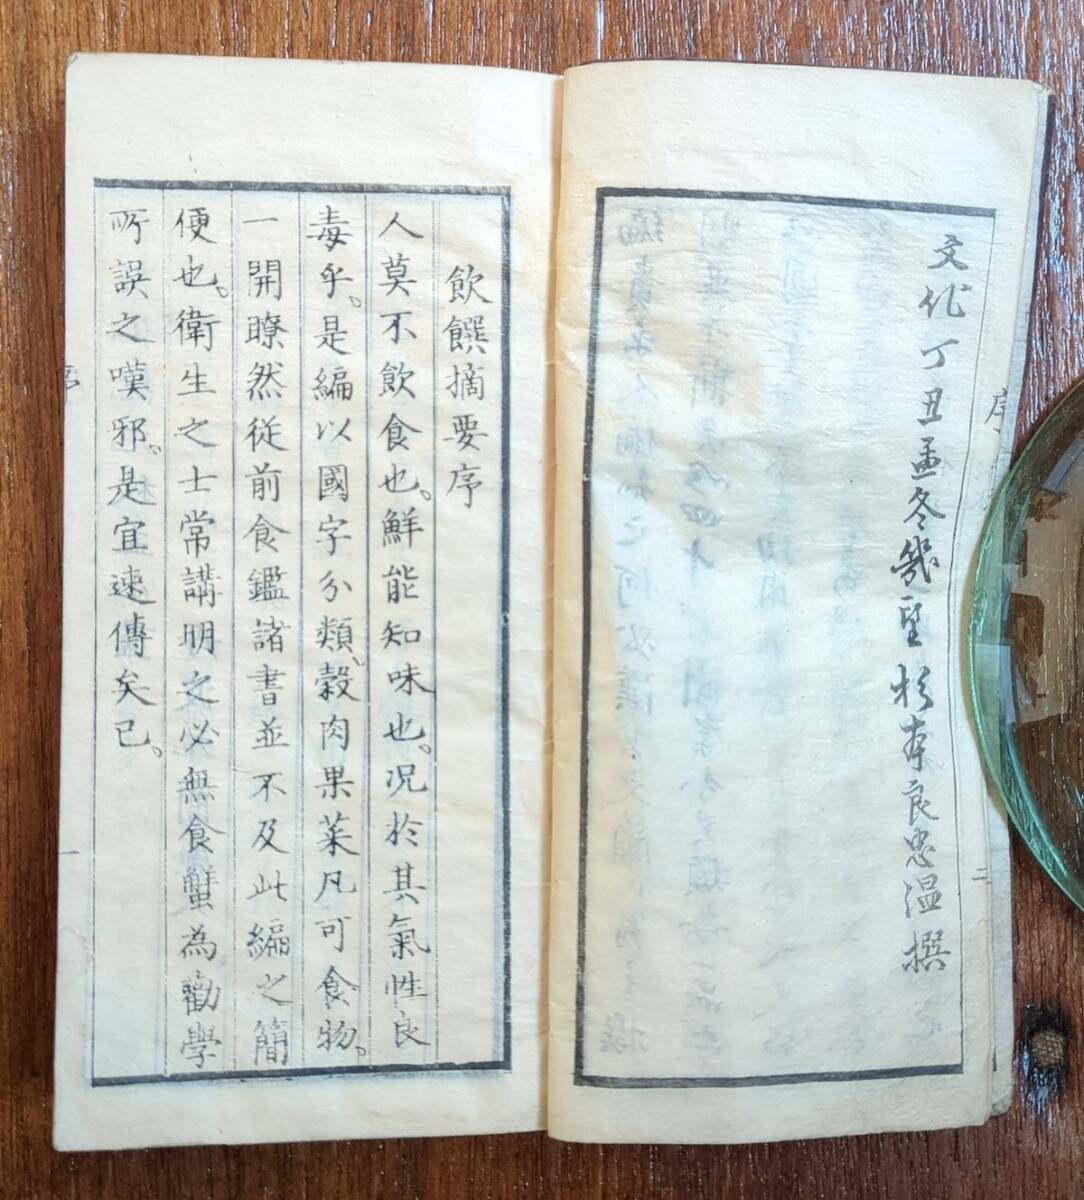 文化丁丑孟冬幾望杉本良忠温撰
序
二
飲饌摘要序
人莫不飲食也。鮮能知味也。况於其氣性良
毒乎。是編以國字分類、穀肉果菜凡可食物。
一開瞭然從前食鑑諸書並不及此編之簡
便也。衛生之士常講明之必無食蟹為勸學
所誤之嘆邪。是宜速傳矣已。
一